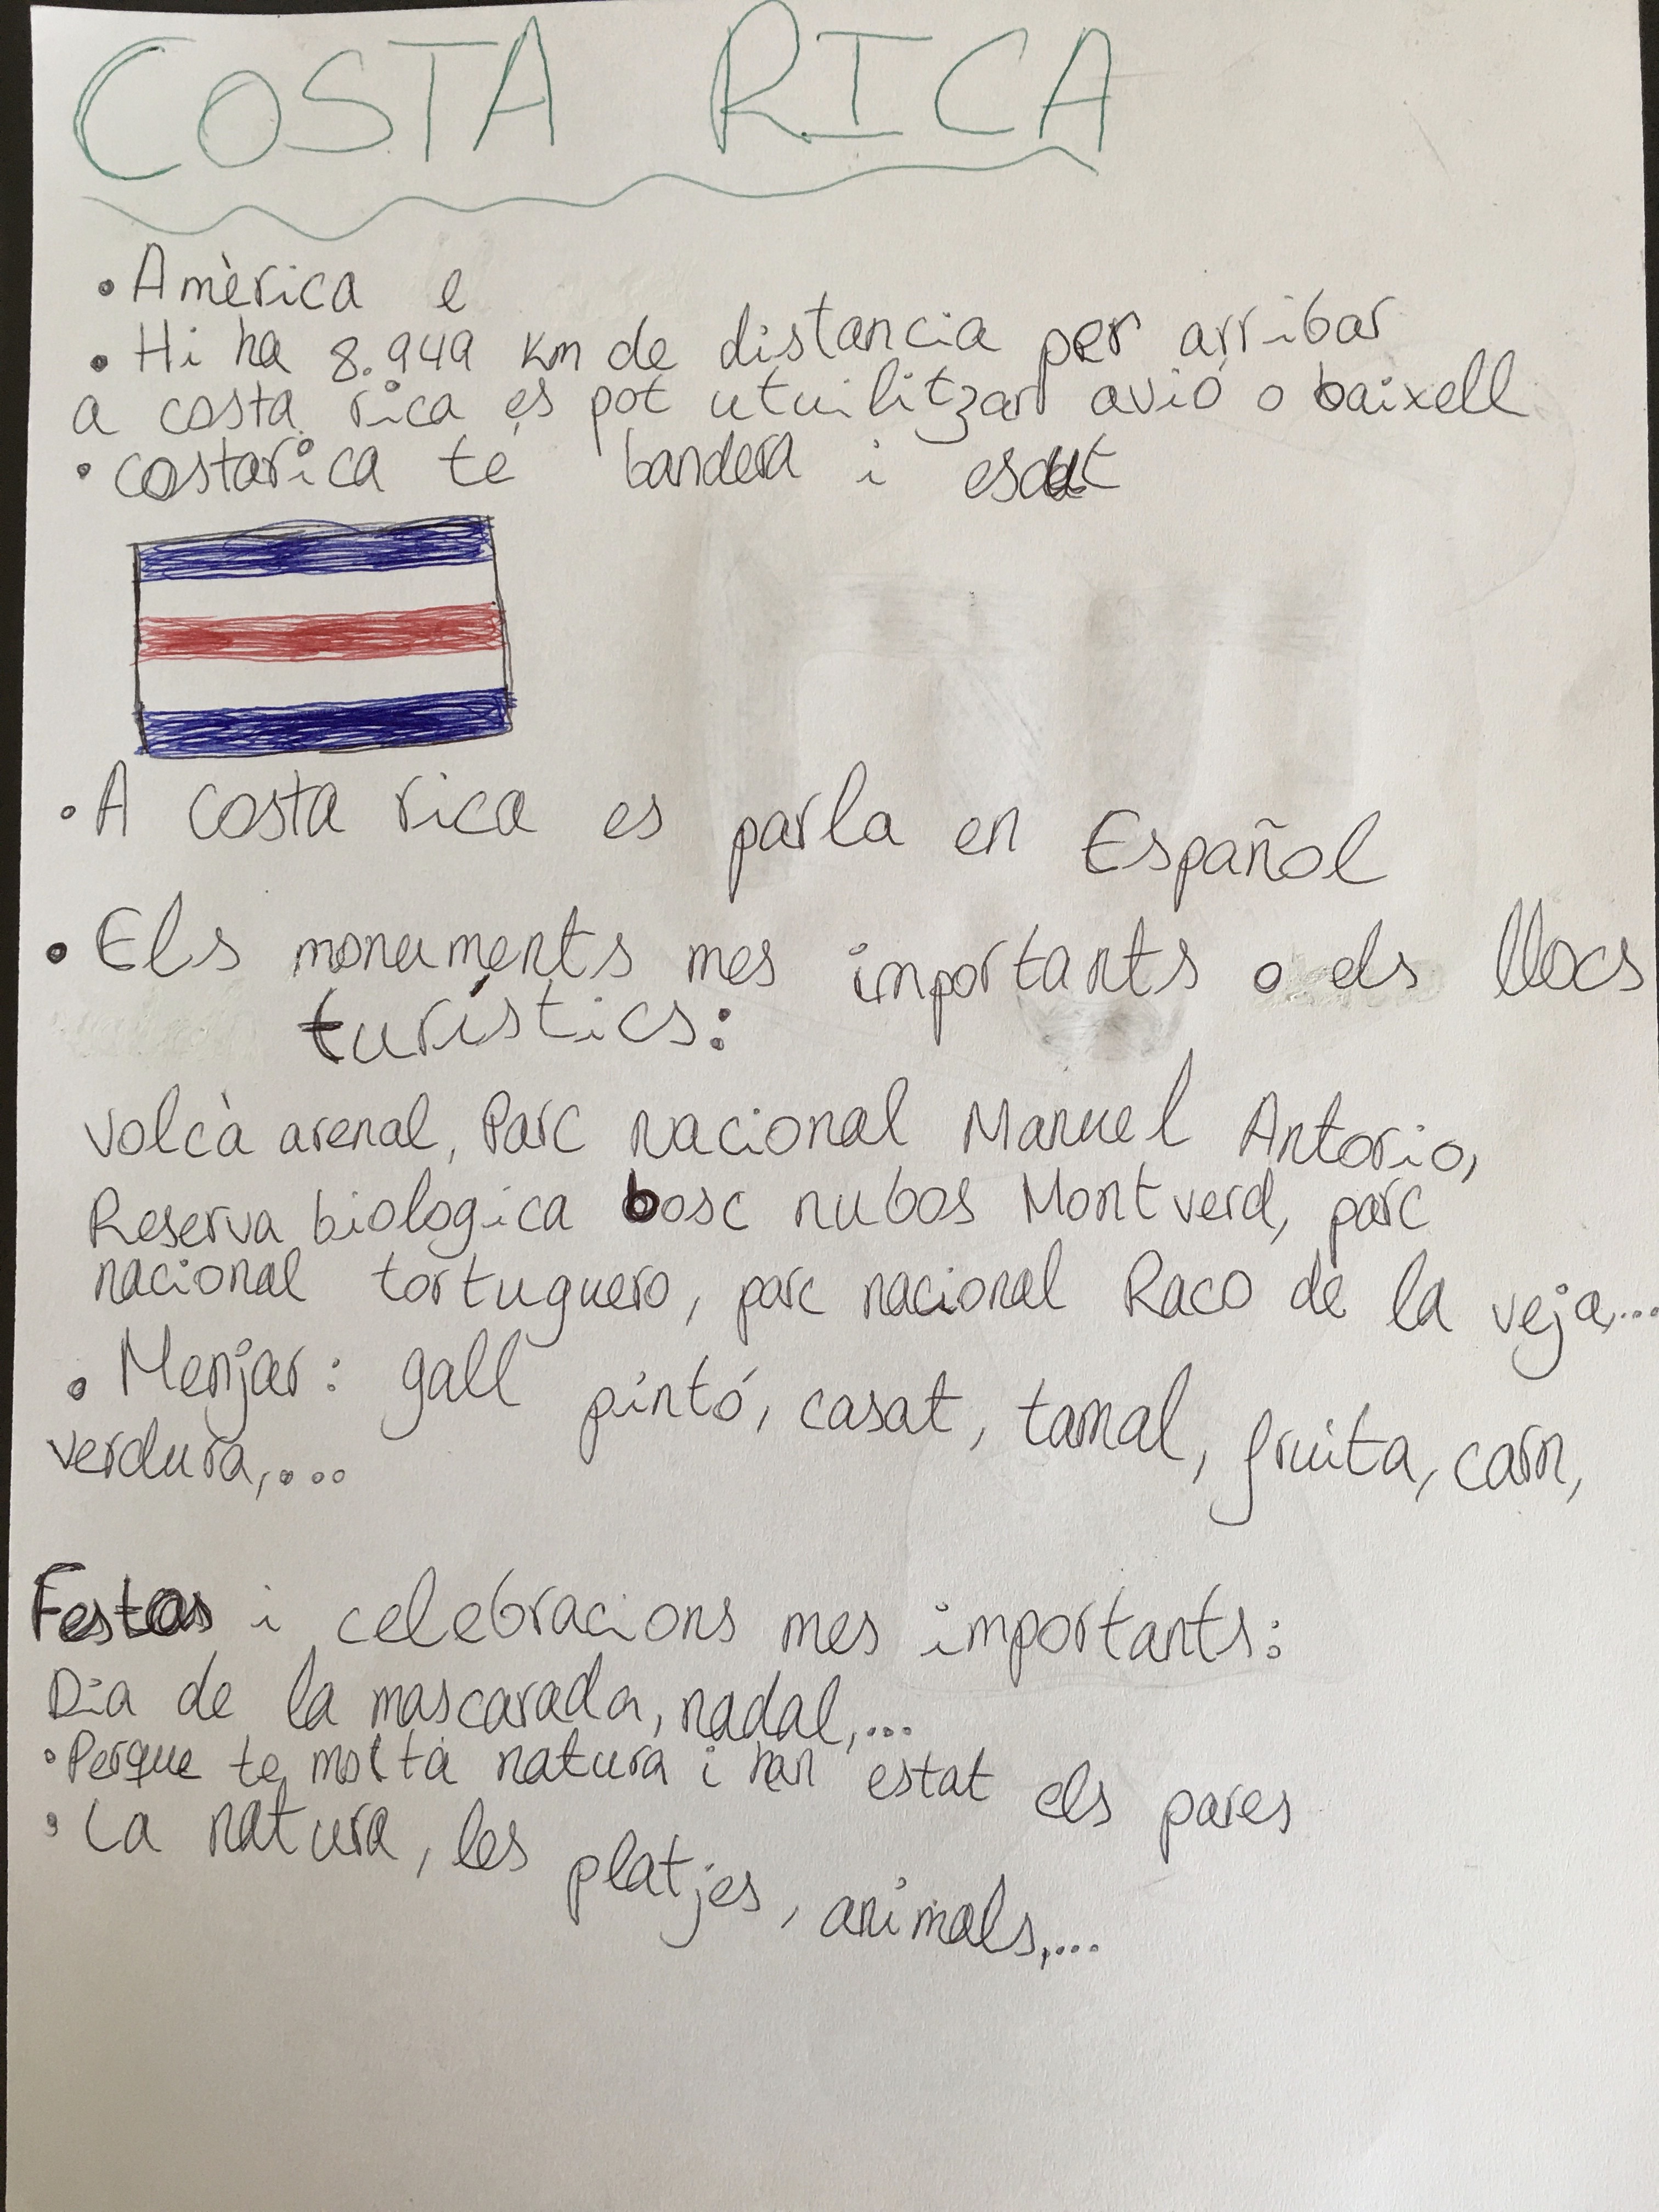 COSTA RICA
• Amèrica e
• Hi ha 8.949 Km de distancia per arribar
a costa rica es pot utuilitzar avió o baixell
• costarica té bandera i escut
• A costa rica es parla en Español
• Els monuments mes importants o els llocs
turístics:
volcà arenal, Parc nacional Manuel Antonio,
Reserva biologica bosc nubos Montverd, parc
nacional tortuguero, parc nacional Raco de la veja,...
• Menjar: gall pintó, casat, tamal, fruita, carn,
verdura,....
Festas i celebracions mes importants:
Dia de la mascarada, nadal,...
• Perque te molta natura i han estat els pares
• La natura, les platjes, animals,...